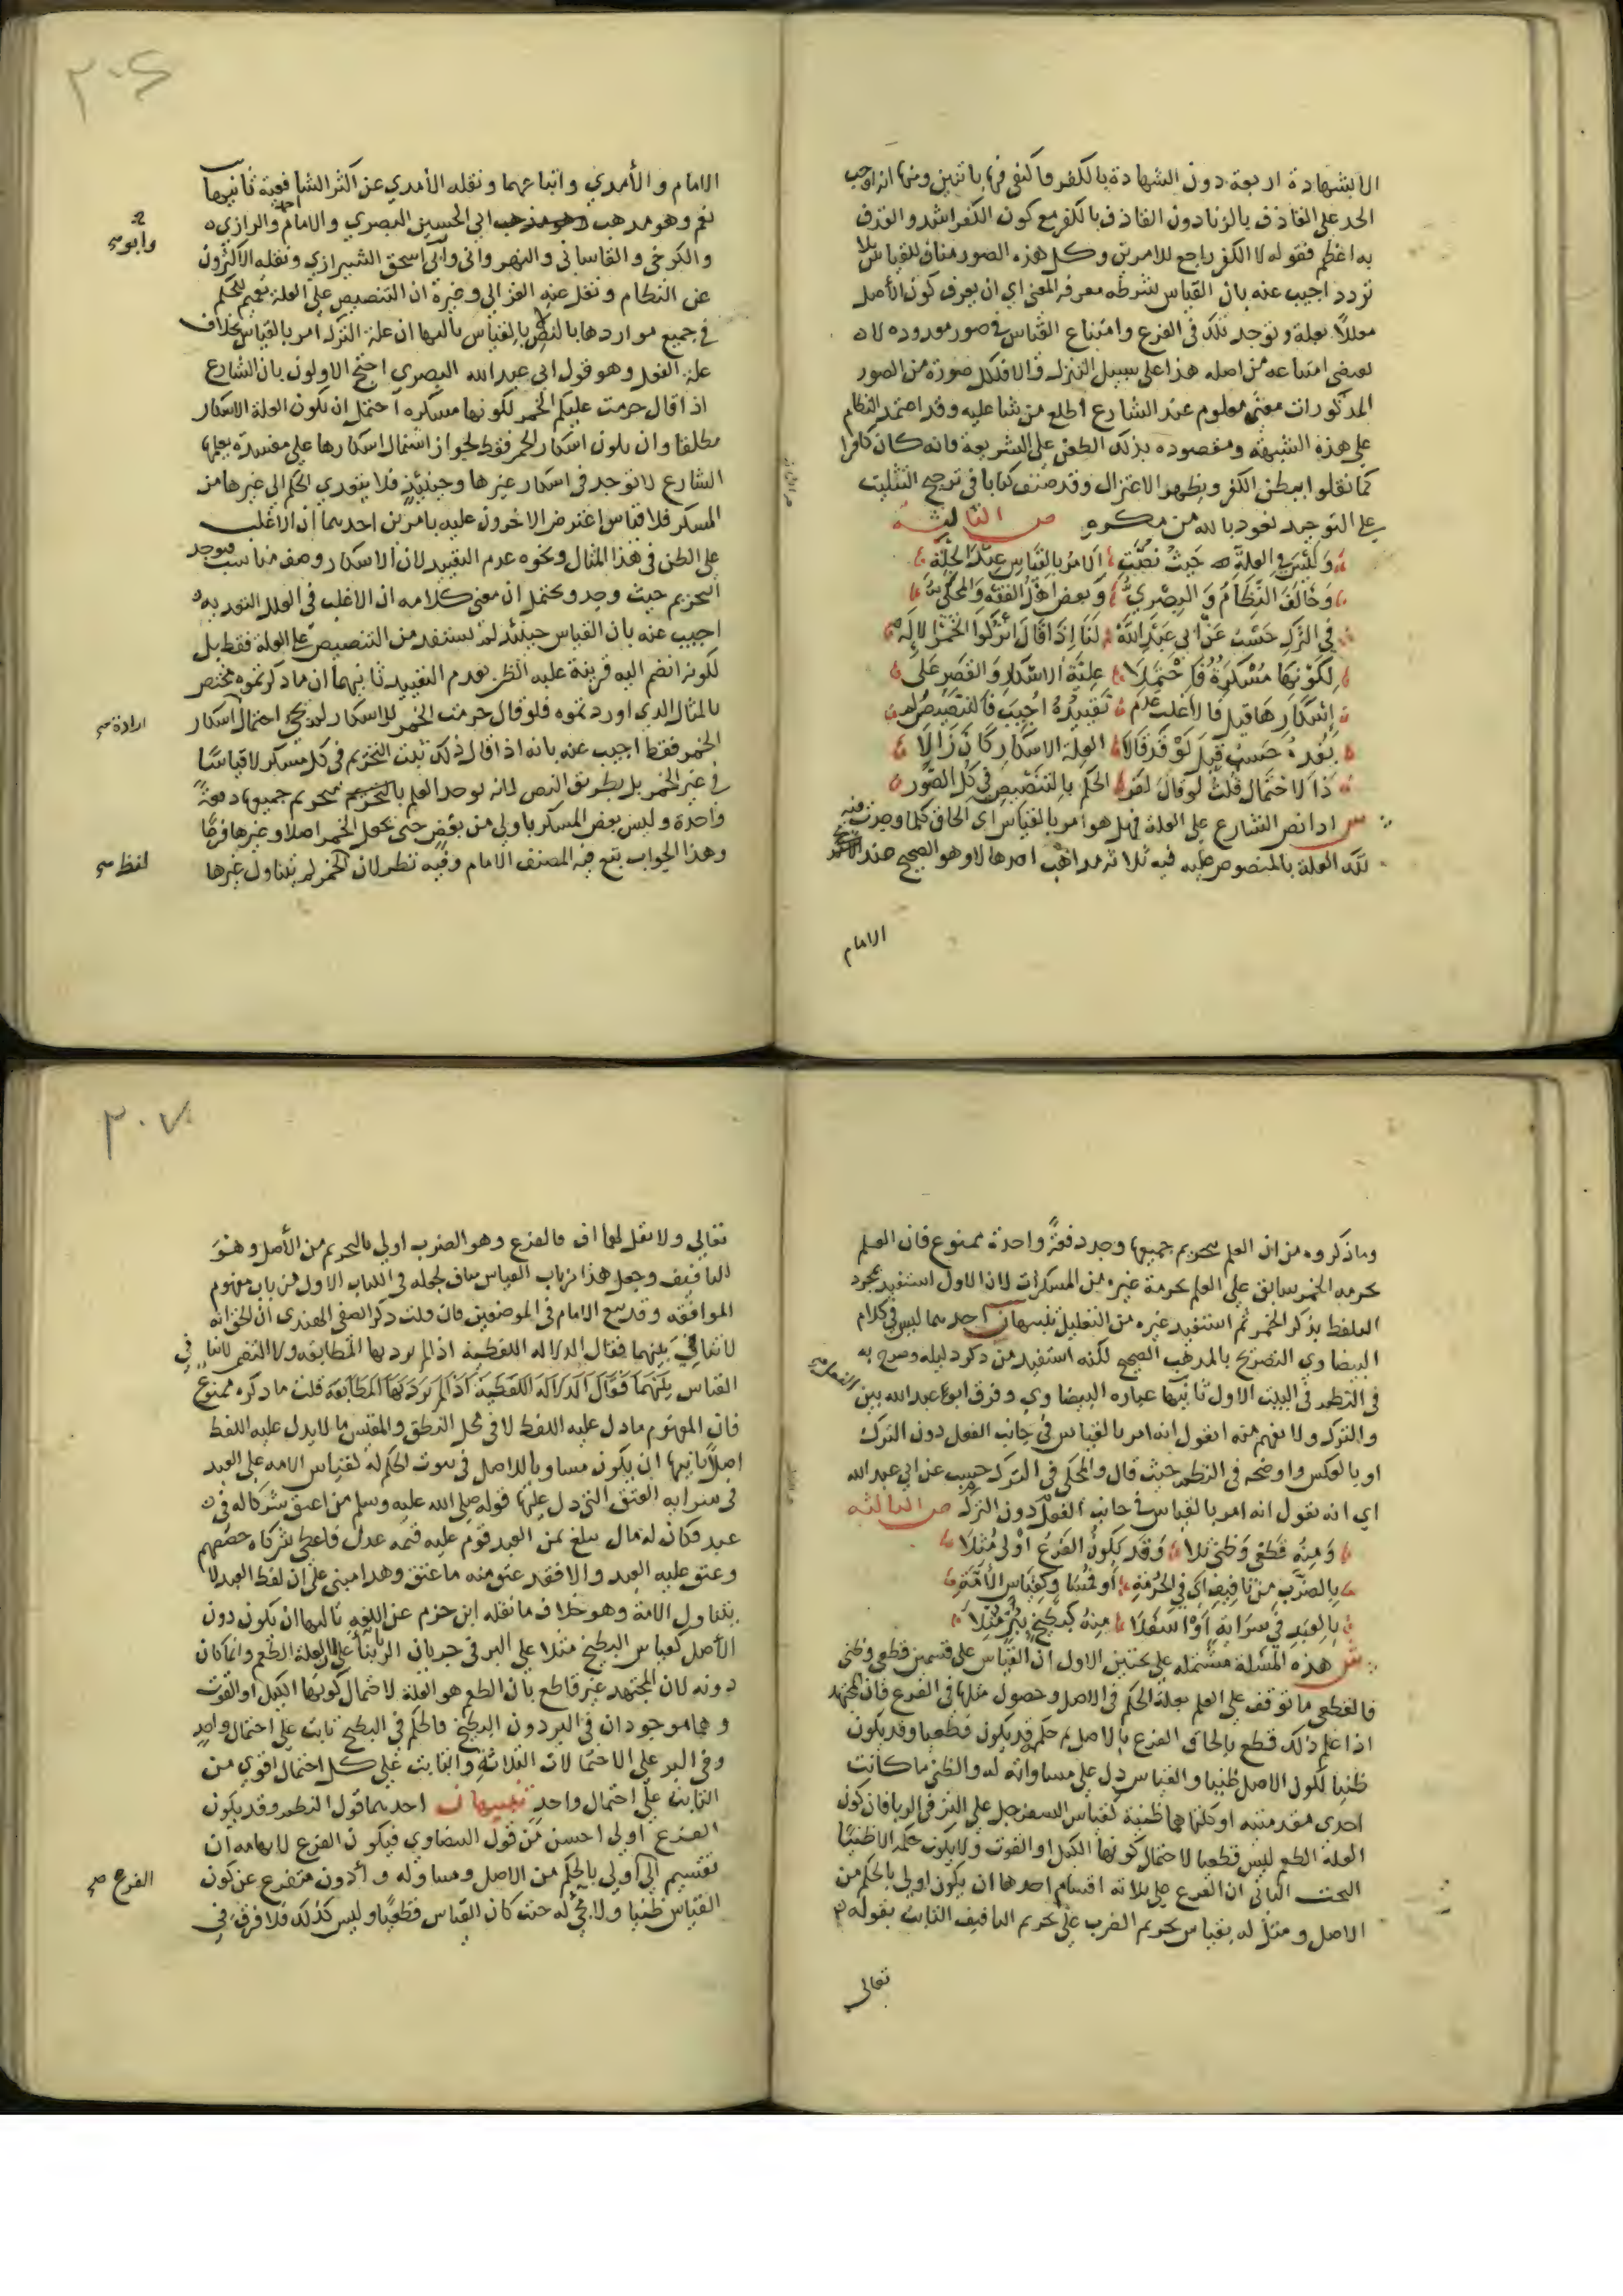 الا بشهادة اربعة دون الشهادة بالكفر فاكتفى فيها باثنين ومنها انه اوجب
الحد على القاذف بالزنا دون القاذف بالكفر مع كون الكفر اشد والقذف
به اعظم فقوله لا الكفر راجع للامرين وكل هذه الصور مناف للقياس بلا
تردد اجيب عنه بان القياس شرطه معرفة المعنى اي ان يعرف كون الأصل
معللاً بعلة وتوجد تلك في الفرع وامتناع القياس في صور معدودة لا
يقتضي امتناعه من اصله هذا على سبيل التنزل والا فلكل صورة من الصور
المذكورات معنى معلوم عند الشارع اطلع من شا عليه وقد اعتمد النظام
على هذه الشبهة ومقصوده بذلك الطعن على الشريعة فانه كان كافرا
كما نقلوا يبطن الكفر ويظهر الاعتزال وقد صنف كتابا في ترجيح التثليث
على التوحيد نعوذ بالله من مكره ص الثالثة
وَلَيْسَ في العلة حيث نصت الامر بالقياس عند الجلة
وخالف النظام والبصري وبعض اهل الفقه والمحكي
في الترك حسب عن ابي عبد الله لنا اذا قال اتركوا الخمر لا
لكونها مسكرة فاحتملا علية الاسكار والقصر على
اسكارها قيل فالاغلب عدم تقييده اجيب فالتنصيص لم
يفده حسب قيل لو قد قالا العلة الاسكار كان زالا
ذا الاحتمال قلت لو قال لقر الحكم بالتنصيص في كل الصور
ش اذا نص الشارع على العلة فهل هو امر بالقياس اي الحاق كلما وجدت فيه
تلك العلة بالمنصوص عليه فيه ثلاثة مذاهب احدها لا وهو الصحيح عند
الامام
٣٠٦
الامام والأمدي واتباعهما ونقله الأمدي عن اكثر الشافعية ثانيها
نعم وهو مذهب ابي الحسين البصري والامام والرازي
وابو صح
والكرخي والقاساني والنهرواني وابي اسحق الشيرازي ونقله الاكثرون
عن النظام ونقل عنه الغزالي وغيره ان التنصيص على العلة تعميم للحكم
في جميع مواردها بالنص لا بالقياس ثالثها ان علة الترك امر بالقياس بخلاف
علة الفعل وهو قول ابي عبد الله البصري احتج الاولون بان الشارع
اذا قال حرمت عليكم الخمر لكونها مسكرة احتمل ان تكون العلة الاسكار
مطلقا وان يكون اسكار الخمر فقط لجواز اشتمال اسكارها على مفسدة يعلمها
الشارع لا توجد في اسكار غيرها وحينئذ فلا يتعدي الحكم الى غيرها من
المسكر فلا قياس اعترض الاخرون عليه بامرين احدهما ان الاغلب
على الظن في هذا المثال ونحوه عدم التقييد لان الاسكار وصف مناسب فيوجد
التحريم حيث وجد ويحتمل ان معنى كلامه ان الاغلب في العلل التعديه
اجيب عنه بان القياس حينئذ لم يستفد من التنصيص على العلة فقط بل
لكونه انضم اليه قرينة غلبة الظن بعدم التقييد ثانيهما ان ما ذكرتموه يختص
بالمثال الذي اوردتموه فلو قال حرمت الخمر للاسكار لم يجي احتمال اسكار
ارادة صح
الخمر فقط اجيب عنه بانه اذا قال ذلك ثبت التحريم في كل مسكر لا قياسًا
في غير الخمر بل بطريق النص لانه يوجد العلم بتحريم جميعها دفعة
واحدة وليس بعض المسكر باولى من بعض حتى يجعل الخمر اصلا وغيرها فرعًا
وهذا الجواب تبع فيه المصنف الامام وفيه نظر لان الخمر لم يتناول غيرها
لفظ صح
وماذكروه من ان العلم بتحريم جميعها وجد دفعةً واحدة ممنوع فان العلم
بحرمة الخمر سابق على العلم بحرمة غيره من المسكرات لان الاول استفيد بمجرد
التلفظ بذكر الخمر ثم استفيد غيره من التعليل تنبيهان احدهما ليس في كلام
البيضاوي التصريح بالمذهب الصحيح لكنه استفيد من ذكر دليله وصرح به
في النظم في البيت الاول ثانيها عبارة البيضاوي وفرق ابو عبد الله بين
الفعل صح
والترك ولا يفهم منه ايقول انه امر بالقياس في جانب الفعل دون الترك
او بالعكس واوضحه في النظم حيث قال والمحكي في الترك حسب عن ابي عبد الله
اي انه يقول انه امر بالقياس في جانب الفعل دون الترك ص الثالثة
ومنه قطعي وظني تلا وقد يكون الفرع اولى مثلا
بالضرب من تافيف اي في الحرمة او كقياس الأمة
بالعبد في سراية او اسفلا منه كبطيخ ببر مثلا
ش هذه المسئلة مشتملة على بحثين الاول ان القياس على قسمين قطعي وظني
فالقطعي ما توقف على العلم بعلة الحكم في الاصل وحصول مثلها في الفرع فان المجتهد
اذا علم ذلك قطع بالحاق الفرع بالاصل ثم حكم قد يكون قطعيا وقد يكون
ظنيا لكون الاصل ظنيا والقياس دل على مساواته له والظني ما كانت
احدى مقدمتيه او كلتاهما ظنية كقياس السفرجل على البر في الربا فان كون
العلة الطعم ليس قطعيا لاحتمال كونها الكيل او القوت ولا يكون حكمه الا ظنيًا
البحث الثاني ان الفرع على ثلاثة اقسام احدها ان يكون اولى بالحكم من
الاصل ومثل له بقياس تحريم الضرب على تحريم التافيف الثابت بقوله
تعالى
٣٠٧
تعالى ولا تقل لهما اف فالفرع وهو الضرب اولى بالتحريم من الأصل وهو
التافيف وجعل هذا من باب القياس مناف لجعله في الكتاب الاول من باب مفهوم
الموافقة وقد تبع الامام في الموضعين فان قلت ذكر الصفي الهندي ان الحق انه
لا تنافي بينهما فقال الدلالة اللفظية اذا لم يرد بها المطابقة ولا التضمن لا تنافي
القياس بينهما فقال الدلالة اللفظية اذا لم يرد بها المطابقة قلت ما ذكره ممنوع
فان المفهوم ما دل عليه اللفظ لا في محل النطق والمقيس ما لا يدل عليه اللفظ
اصلاً ثانيها ان يكون مساويا للاصل في ثبوت الحكم له كقياس الامة على العبد
في سراية العتق التي دل عليها قوله صلى الله عليه وسلم من اعتق شركا له في
عبد فكان له مال يبلغ ثمن العبد قوم عليه قيمة عدل فاعطى شركاه حصصهم
وعتق عليه العبد والا فقد عتق منه ما عتق وهذا مبني على ان لفظ العبد لا
يتناول الامة وهو خلاف ما نقله ابن حزم عن اللغة ثالثها ان يكون دون
الأصل كقياس البطيخ مثلا على البر في جريان الربا بنا على ان العلة الطعم وانما كان
دونه لان المجتهد غير قاطع بان الطعم هو العلة لاحتمال كونها الكيل او القوت
وهما موجودان في البر دون البطيخ فالحكم في البطيخ ثابت على احتمال واحد
وفي البر على الاحتمالات الثلاثة والثابت على كل احتمال اقوى من
الثابت على احتمال واحد تنبيهان احدهما قول النظم وقد يكون
الفرع اولى احسن من قول البيضاوي فيكون الفرع لايهامه ان
تقسيم الى اولى بالحكم من الاصل ومساو له وأدون متفرع عن كون
الفرع صح
القياس ظنيا ولا يجي له حيث كان القياس قطعيًا وليس كذلك فلا فرق في